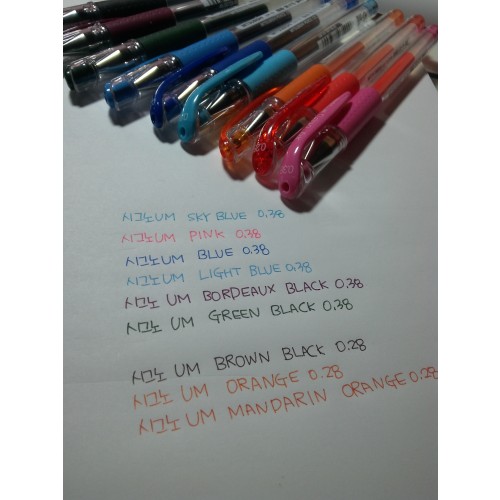 시그노 UM SKY BLUE 0.38
시그노 UM PINK 0.38
시그노 UM BLUE 0.38
시그노 UM LIGHT BLUE 0.38
시그노 UM BORDEAUX BLACK 0.38
시그노 UM GREEN BLACK 0.38
시그노 UM BROWN BLACK 0.28
시그노 UM ORANGE 0.28
시그노 UM MANDARIN ORANGE 0.28